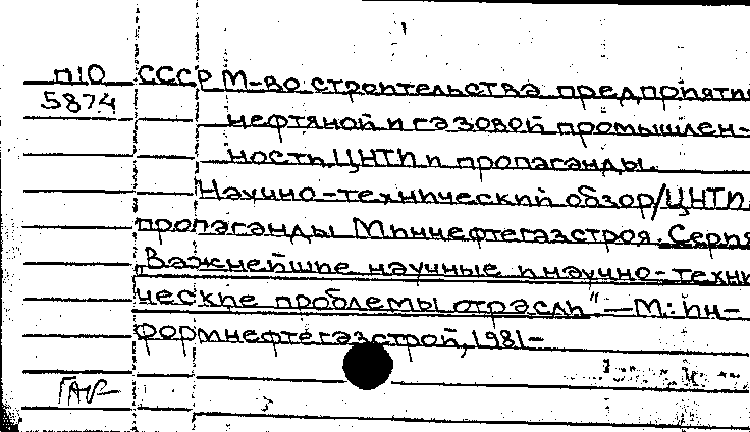 П10 СССР М-во строительства предприяти
5874 нефтяной и газовой промышлен-
ности. ЦНТИ и пропаганды.
Научно-технический обзор/ЦНТИ
пропаганды Миннефтегазстроя. Серия
"Важнейшие научные и научно-техни
ческие проблемы отрасли" — М.: Ин-
формнефтегазстрой, 1981-